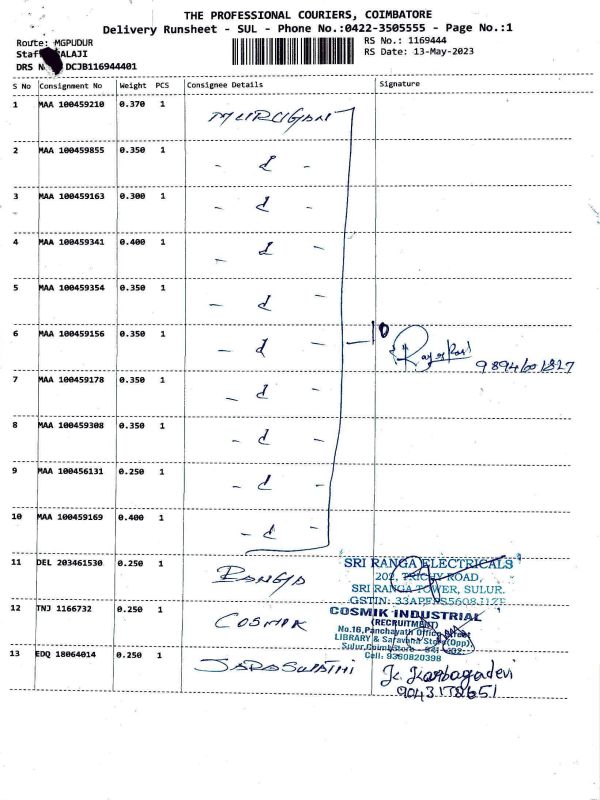 THE PROFESSIONAL COURIERS, COIMBATORE
Delivery Runsheet - SUL - Phone No.:0422-3505555 - Page No.:1
Route: MGPUDUR
RS No.: 1169444
Staf ALAJI
RS Date: 13-May-2023
DRS N DCJB116944401
S No Consignment No Weight PCS Consignee Details Signature
1 MAA 100459210 0.370 1 MURUGAN
2 MAA 100459855 0.350 1 - d -
3 MAA 100459163 0.300 1 - d -
4 MAA 100459341 0.400 1 - d -
5 MAA 100459354 0.350 1 - d -
10
6 MAA 100459156 0.350 1 - d -
7 MAA 100459178 0.350 1 - d -
8 MAA 100459308 0.350 1 - d -
9 MAA 100456131 0.250 1 - d -
10 MAA 100459169 0.400 1 - d -
11 DEL 203461530 0.250 1 RANGA
SRI RANGA ELECTRICALS
202, TRICHY ROAD,
SRI RANGA TOWER, SULUR.
12 TNJ 1166732 0.250 1 COSMIK
COSMIK INDUSTRIAL
(RECRUITMENT)
No.16, Panchayath Office Street
LIBRARY & Safavana Store(Opp)
Cell: 9360820398
13 EDQ 18064014 0.250 1 SARASWATHI
K. Karbagadevi